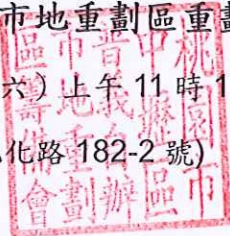 市地重劃區重劃
六）上午 11 時 1
化路 182-2 號)
桃園市
中壢區
普義自辦
市地重劃
區籌備會